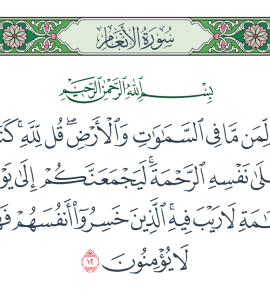 سُورَةُ الأَنْعَام
بِسْمِ ٱللَّهِ ٱلرَّحْمَٰنِ ٱلرَّحِيمِ
لِّمَن مَّا فِى ٱلسَّمَٰوَٰتِ وَٱلْأَرْضِ ۖ قُل لِّلَّهِ ۚ
نَفْسِهِ ٱلرَّحْمَةَ ۚ لَيَجْمَعَنَّكُمْ إِلَىٰ
لَا رَيْبَ فِيهِ ۚ ٱلَّذِينَ خَسِرُوٓا۟ أَنفُسَهُمْ
لَا يُؤْمِنُونَ ١٢